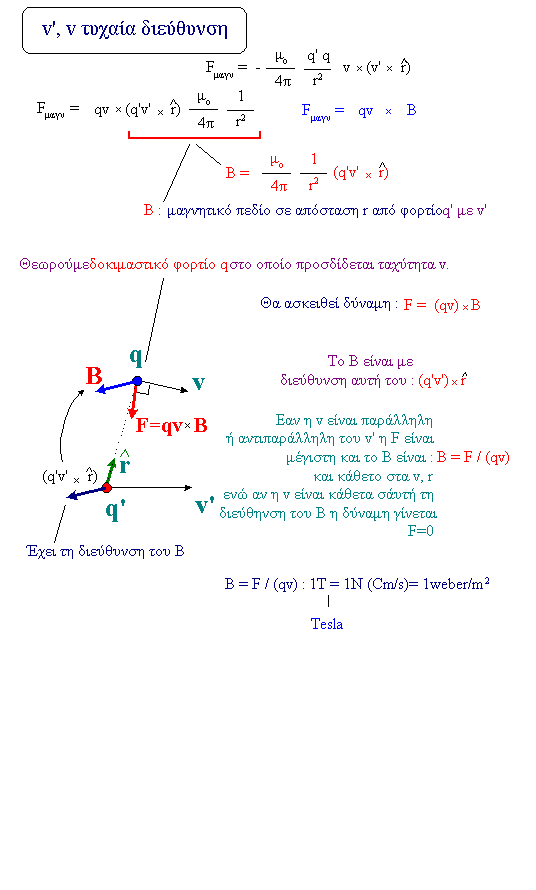 v', v τυχαία διεύθυνση
Fμαγν = - μο/4π q' q/r² v × (v' × r̂)
Fμαγν = qv × (q'v' × r̂) μο/4π 1/r² Fμαγν = qv × B
B = μο/4π 1/r² (q'v' × r̂)
B : μαγνητικό πεδίο σε απόσταση r από φορτίοq' με v'
Θεωρούμεδοκιμαστικό φορτίο qστο οποίο προσδίδεται ταχύτητα v.
Θα ασκειθεί δύναμη : F = (qv) × B
q
B
v
F=qv×B
Το B είναι με
διεύθυνση αυτή του : (q'v') × r̂
Εαν η v είναι παράλληλη
ή αντιπαράλληλη του v' η F είναι
μέγιστη και το B είναι : B = F / (qv)
και κάθετο στα v, r
ενώ αν η v είναι κάθετα σάυτή τη
διεύθηνση του B η δύναμη γίνεται
F=0
r̂
(q'v' × r̂)
q'
v'
Έχει τη διεύθυνση του B
B = F / (qv) : 1T = 1N (Cm/s)= 1weber/m²
Tesla